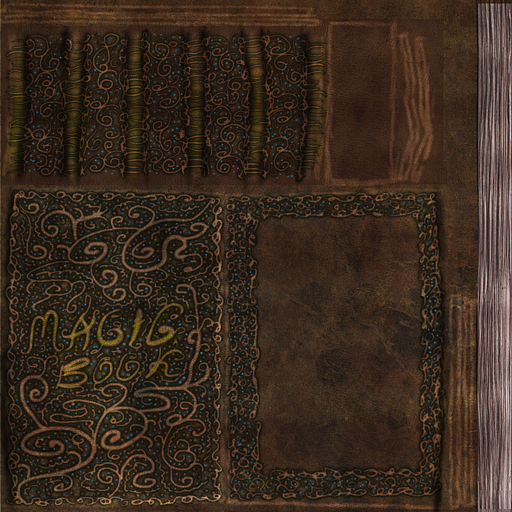 MAGIC
BOOK